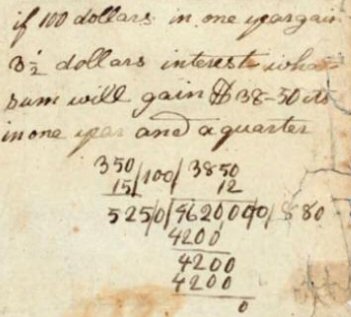 if 100 dollars in one year gain
3 1/2 dollars interest what
sum will gain $38-50 cts
in one year and a quarter
350/100/3850
15 12
5250/4620000/880
4200
4200
4200
0